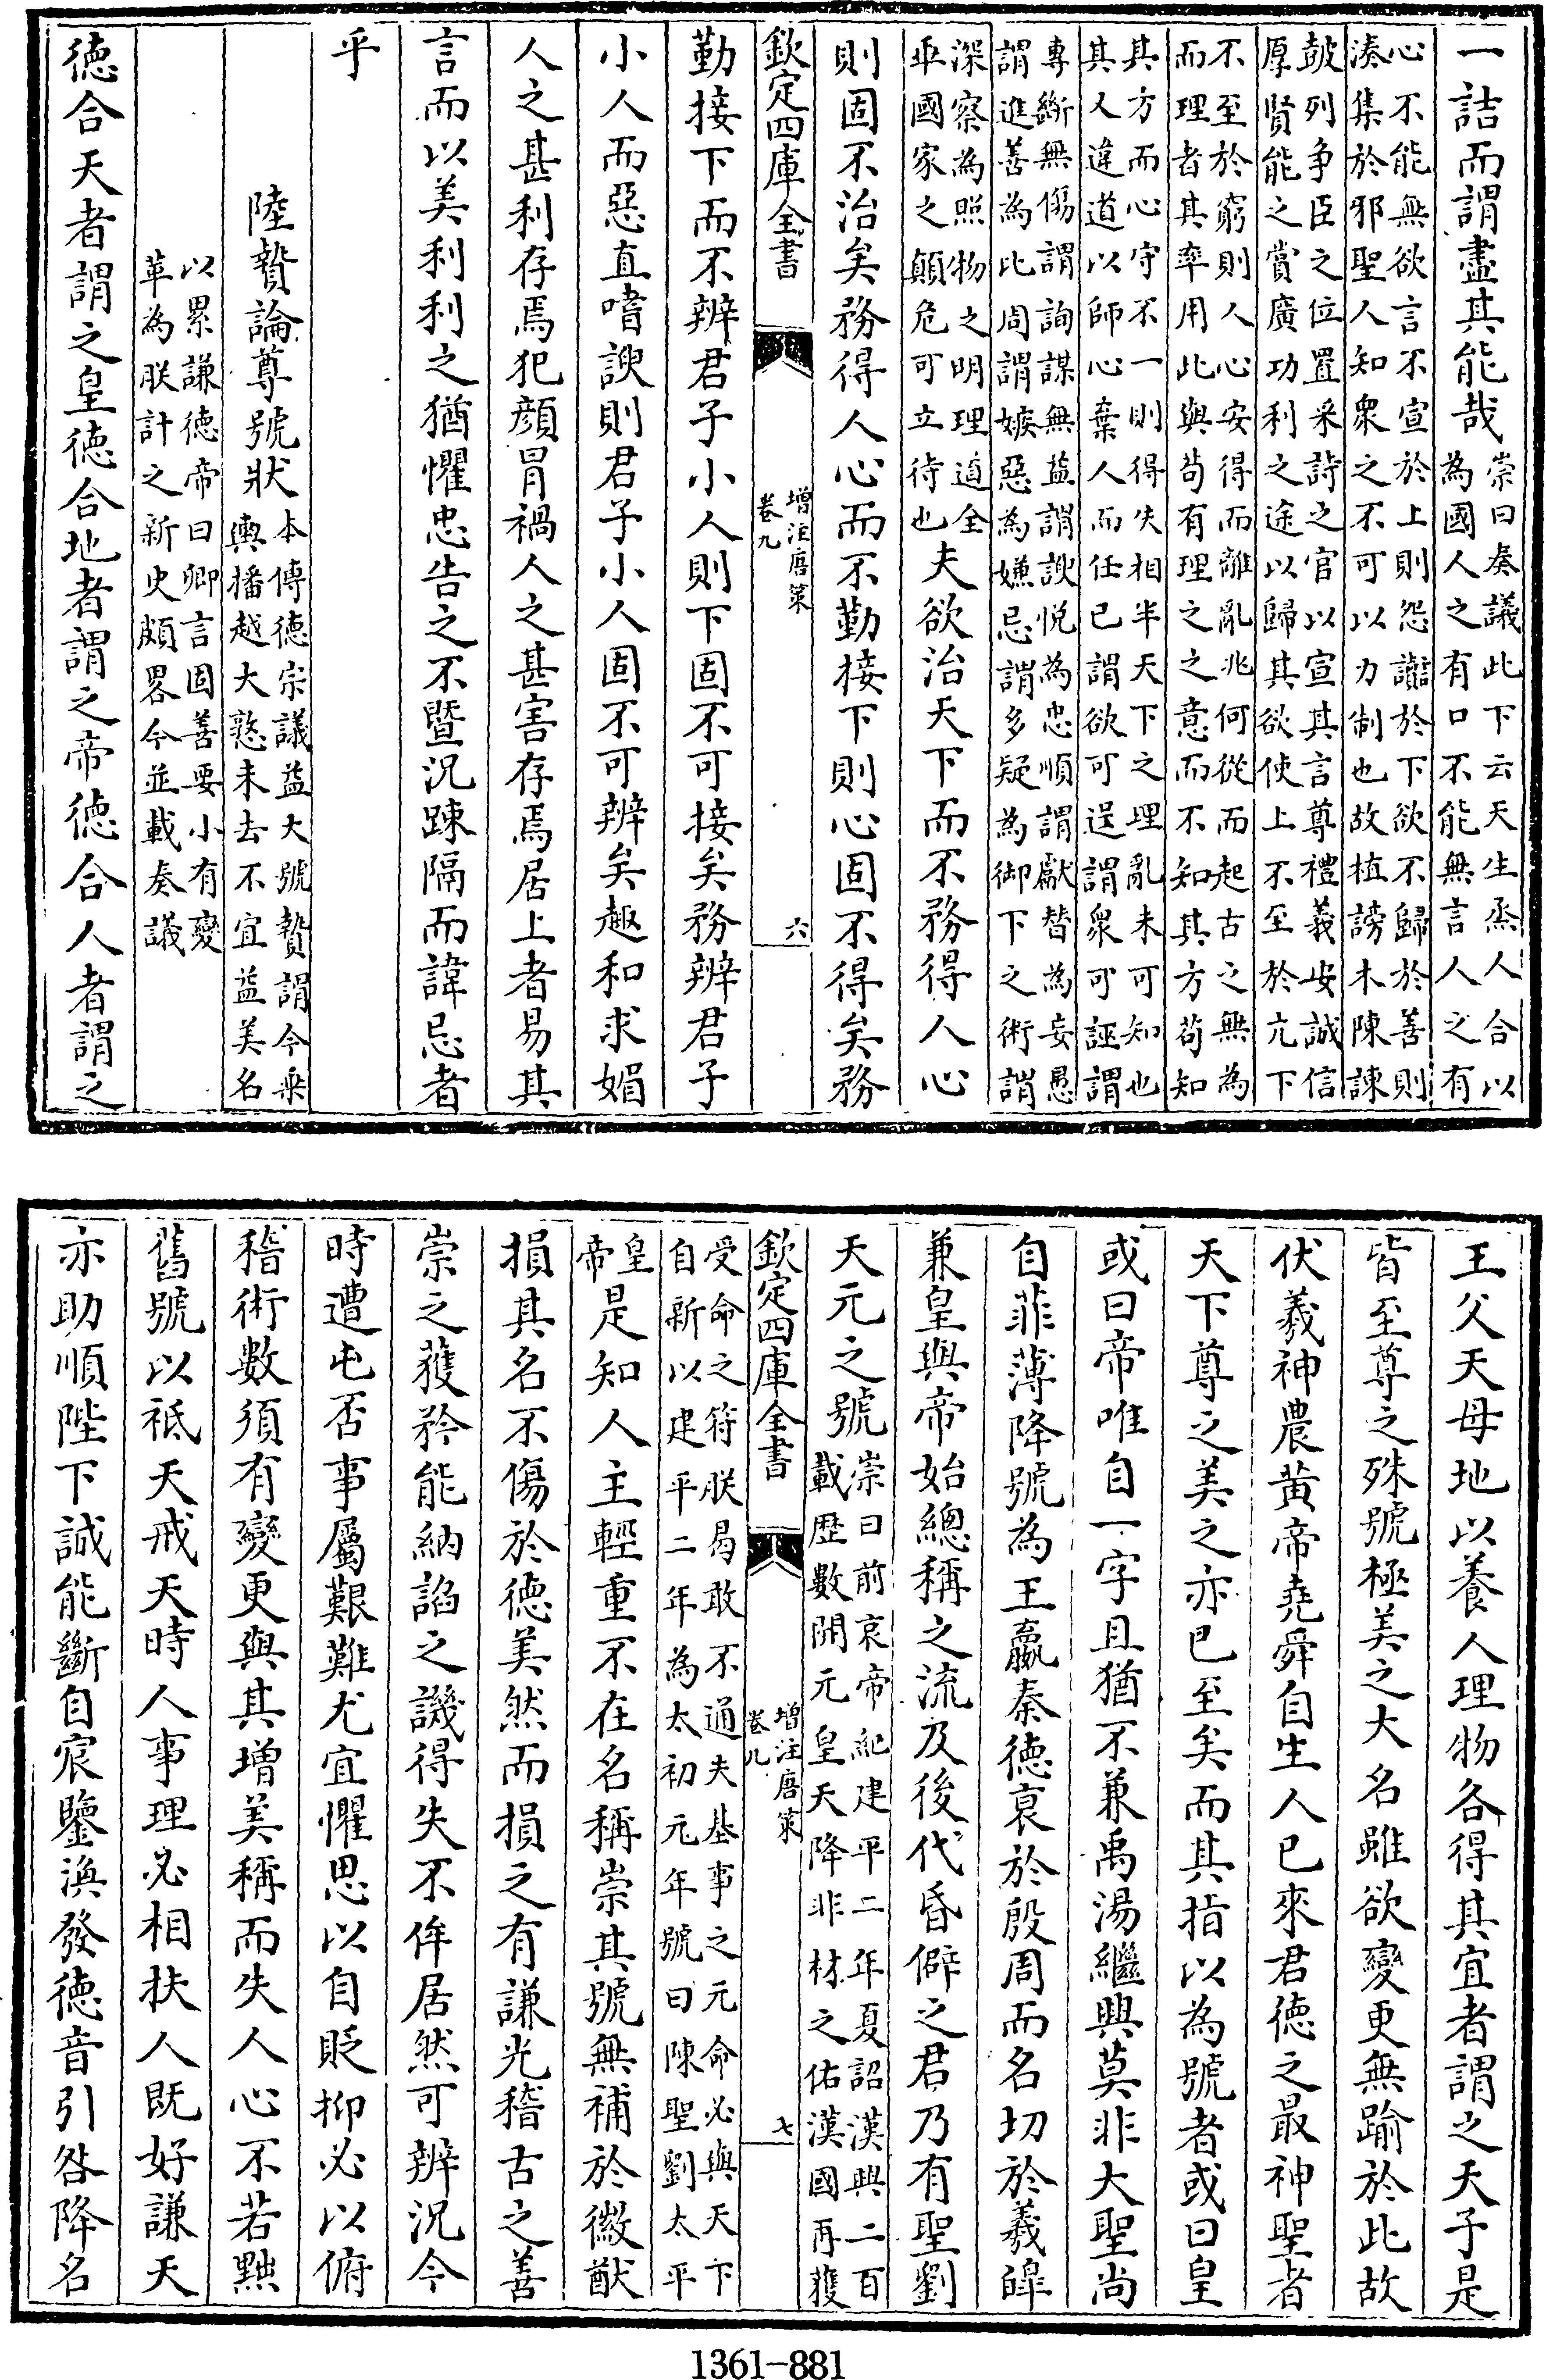 一詰而謂盡其能哉崇曰奏議此下云天生烝人合以
為國人之有口不能無言人之有
心不能無欲言不宣於上則怨讟於下欲不歸於善則
湊集於邪聖人知衆之不可以力制也故植謗木陳諫
鼓列争臣之位置采詩之官以宣其言尊禮義安誠信
厚賢能之賞廣功利之途以歸其欲使上不至於亢下
不至於窮則人心安得而離亂兆何從而起古之無為
而理者其率用此與苟有理之之意而不知其方苟知
其方而心守不一則得失相半天下之理亂未可知也
其又違道以師心棄人而任已謂欲可逞謂衆可誣謂
專斷無傷謂詢謀無益謂諛悦為忠順謂獻替為妄愚
謂進善為比周謂嫉惡為嫌忌謂多疑為御下之術謂
深察為照物之明理道全
乖國家之顛危可立待也夫欲治天下而不務得人心
則固不治矣務得人心而不勤接下則心固不得矣務
欽定四庫全書
增注唐策
卷九
六
勤接下而不辨君子小人則下固不可接矣務辨君子
小人而惡直嗜諛則君子小人固不可辨矣趣和求媚
人之甚利存焉犯顔冒禍人之甚害存焉居上者易其
言而以美利利之猶懼忠告之不暨況踈隔而諱忌者
乎
陸贄論尊號狀本傳德宗議益大號贄謂今乘
輿播越大憝未去不宜益美名
以累謙德帝曰卿言固善要小有變
革為朕計之新史頗畧今並載奏議
德合天者謂之皇德合地者謂之帝德合人者謂之
王父天母地以養人理物各得其宜者謂之天子是
皆至尊之殊號極美之大名雖欲變更無踰於此故
伏羲神農黄帝堯舜自生人已來君德之最神聖者
天下尊之美之亦已至矣而其指以為號者或曰皇
或曰帝唯自一字且猶不兼禹湯繼興莫非大聖尚
自菲薄降號為王嬴秦德衰於殷周而名切於羲皥
兼皇與帝始總稱之流及後代昏僻之君乃有聖劉
天元之號崇曰前哀帝紀建平二年夏詔漢興二百
載歴數開元皇天降非材之佑漢國再獲
欽定四庫全書
增注唐策
卷九
七
受命之符朕曷敢不通夫基事之元命必與天下
自新以建平二年為太初元年號曰陳聖劉太平
皇
帝是知人主輕重不在名稱崇其號無補於徽猷
損其名不傷於德美然而損之有謙光稽古之善
崇之獲矜能納諂之譏得失不侔居然可辨況今
時遭屯否事屬艱難尤宜懼思以自貶抑必以俯
稽術數須有變更與其增美稱而失人心不若黜
舊號以祗天戒天時人事理必相扶人既好謙天
亦助順陛下誠能斷自宸鑒渙發德音引咎降名
1361-881